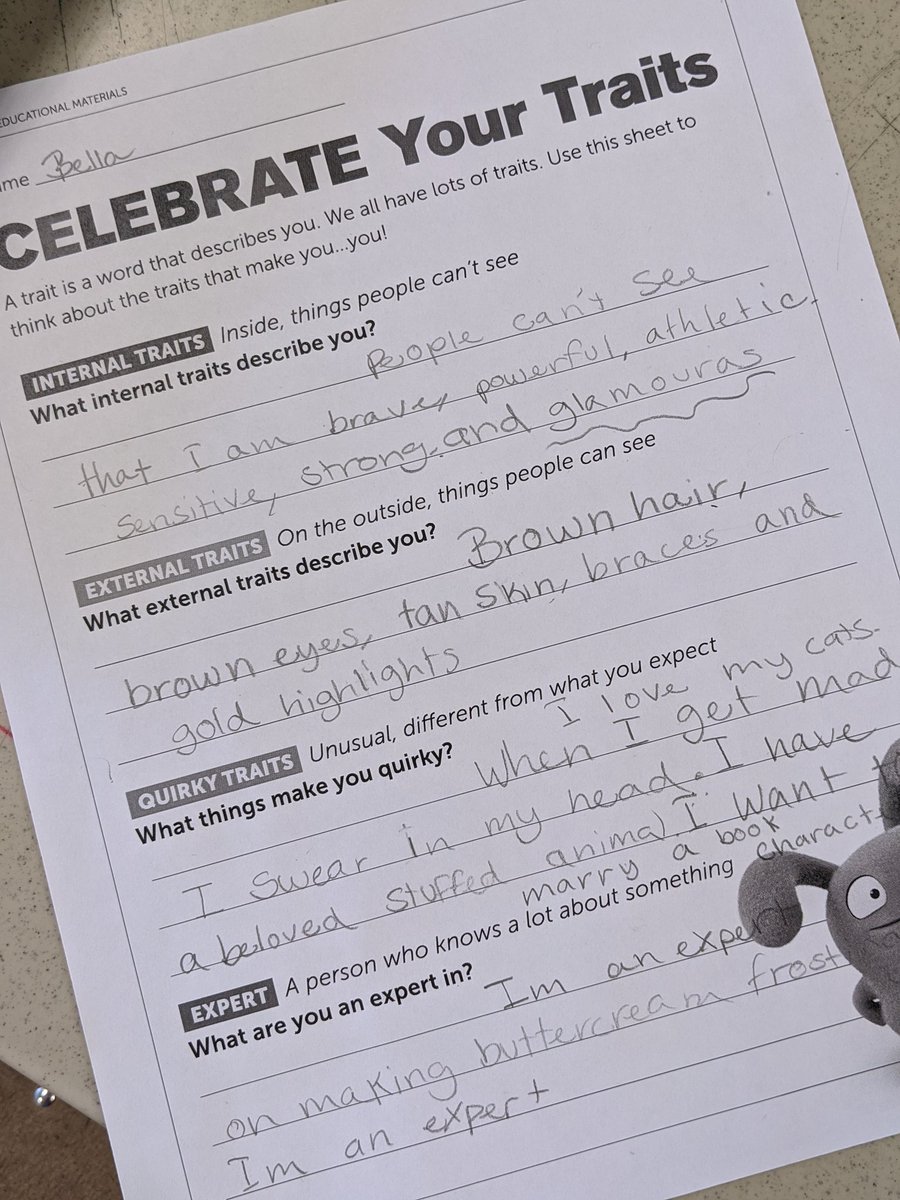 EDUCATIONAL MATERIALS
Name Bella
CELEBRATE Your Traits
A trait is a word that describes you. We all have lots of traits. Use this sheet to
think about the traits that make you...you!
INTERNAL TRAITS Inside, things people can't see
What internal traits describe you? People can't see
that I am brave, powerful, athletic,
sensitive, strong, and glamouras
EXTERNAL TRAITS On the outside, things people can see
What external traits describe you? Brown hair,
brown eyes, tan skin, braces and
gold highlights
QUIRKY TRAITS Unusual, different from what you expect
What things make you quirky? I love my cats.
When I get mad
I swear in my head. I have
a beloved stuffed animal. I want
marry a book charact
EXPERT A person who knows a lot about something
What are you an expert in? Im an expert
on making buttercream frost
Im an expert